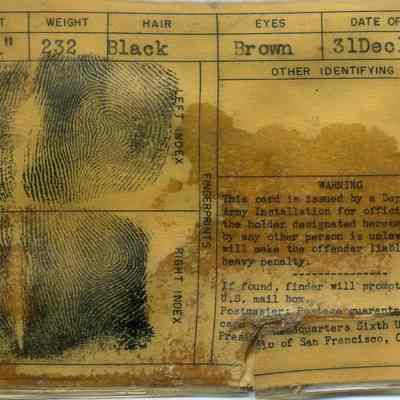 WEIGHT HAIR EYES DATE OF
232 Black Brown 31Dec
OTHER IDENTIFYING
LEFT INDEX
FINGERPRINTS
RIGHT INDEX
WARNING
This card is issued by a Dep
Army Installation for offic
the holder designated hereon
by any other person is unlaw
will make the offender liabl
heavy penalty.
If found, finder will prompt
U.S. mail box
Postmaster: Postage guarant
Headquarters Sixth U
of San Francisco, C